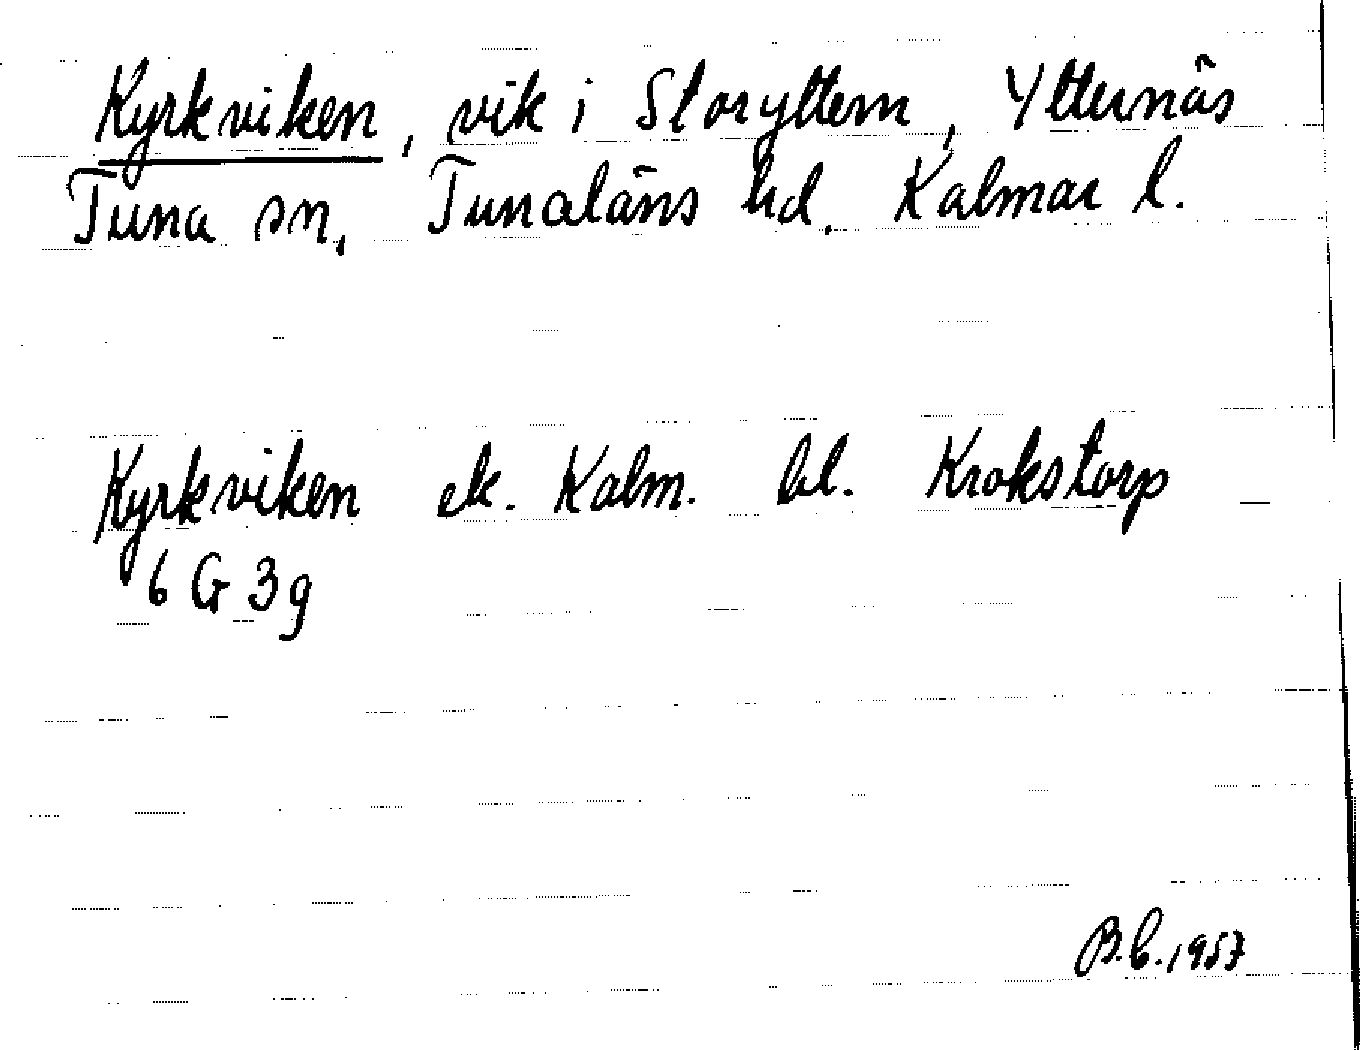 Kyrkviken, vik i Storyttern, Ytternäs
Tuna sn, Tunaläns hd, Kalmar l.
Kyrkviken ek. Kalm. bl. Krokstorp
6 G 3g
B.E. 1957